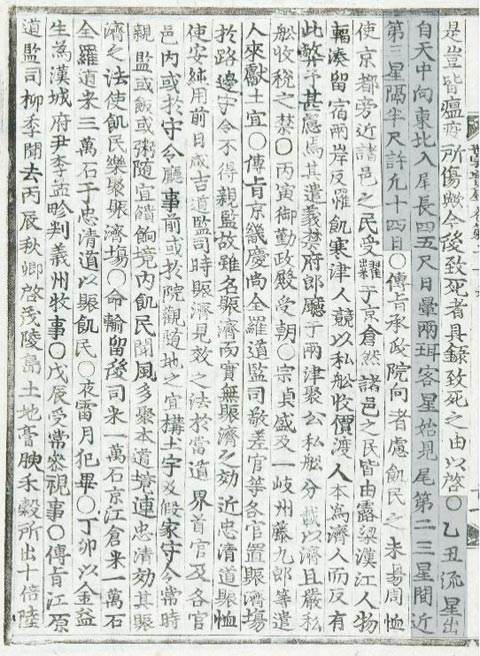 是豈皆瘟疫所傷歟今後致死者具錄致死之由以啓○乙丑流星出
自天中向東北入尾長四五尺日暈兩珥客星始見尾第二三星間近
第三星隔半尺許凡十四日○傳旨承政院向者慮飢民之未易周恤
使京都旁近諸邑之民受糶于京倉然諸邑之民皆由露梁漢江人物
輻湊留宿兩岸反罹飢寒津人競以私舩收價渡人本爲濟人而反有
此弊予甚慮焉其遣義禁府郞廳于兩津聚公私舩分載以濟且嚴私
舩收稅之禁○丙寅御勤政殿受朝○宗貞盛及一岐州藤九郞等遣
人來獻土宜○傳旨京畿慶尙全羅道監司敬差官等各官置賑濟場
於路邊守令不得親監故雖名賑濟而實無賑濟之効近忠淸道賑恤
使安純用前日咸吉道監司時賑濟見效之法於當道界首官及各官
邑內或於守令廳事前或於院觀隨地之宜構土宇及假家守令常時
親監或飯或粥隨宜饋餉境內飢民聞風多聚本道境連忠淸効其賑
濟之法使飢民樂聚賑濟場○命輸留後司米一萬石京江倉米一萬石
全羅道米三萬石于忠淸道以賑飢民○夜雷月犯畢○丁卯以金益
生爲漢城府尹李孟畛判義州牧事○戊辰受常參視事○傳旨江原
道監司柳季聞去丙辰秋卿啓茂陵島土地膏腴禾穀所出十倍陸